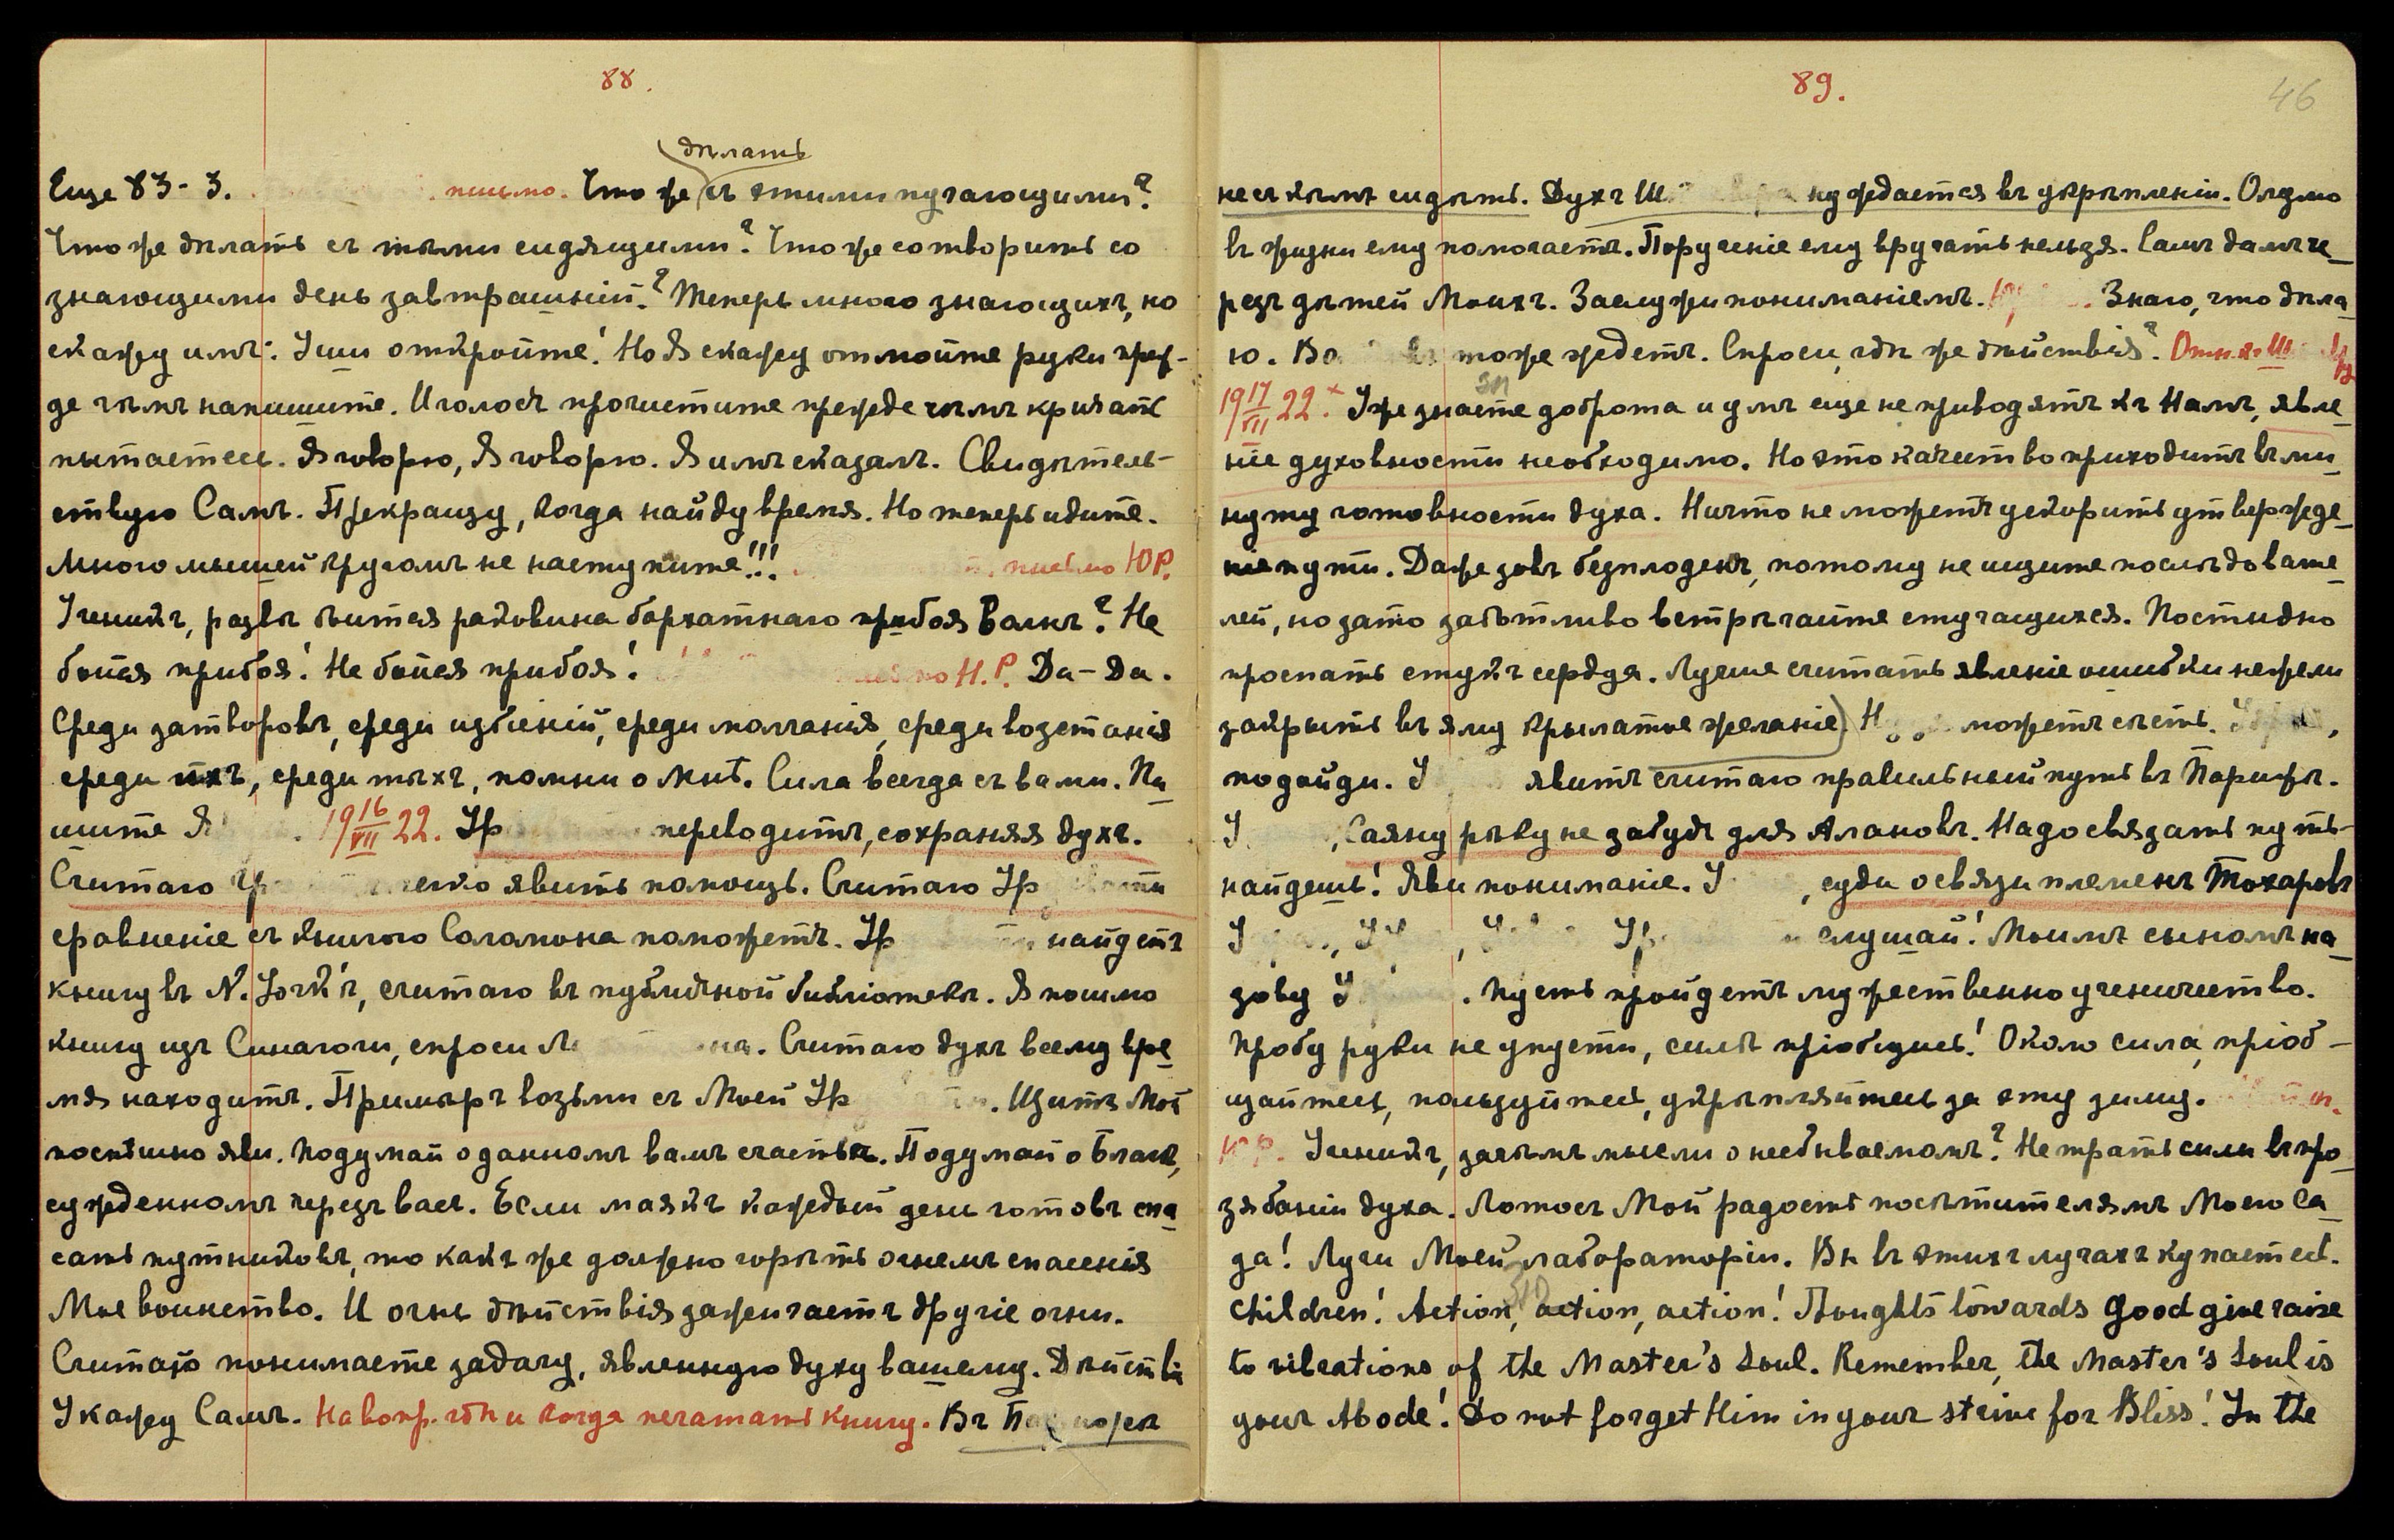 88.
дѣлать
Еще 83-3. письмо. Что же съ этими пугающими?
Что же дѣлать съ тѣми сидящими? Что же сотворить со
знающими день завтрашній? Теперь много знающихъ, но
скажу имъ: Уши откройте! Но Я скажу отмойте руки преж-
де чѣмъ напишите. И голосъ прочистите прежде чѣмъ кричать
пытаетесь. Я говорю, Я говорю. Я имъ сказалъ. Свидѣтель-
ствую Самъ. Прекращу, когда найду время. Но теперь идите.
Много мышей кругомъ не наступите!!! письмо Ю.Р.
Ученикъ, развѣ боится раковина бархатнаго прибоя волнъ? Не
бойся прибоя! Не бойся прибоя! Н.Р. Да-Да.
Среди затворовъ, среди избіеній, среди молчанія, среди возстанія
среди ихъ, среди тѣхъ, помни о Мнѣ. Сила всегда съ вами. Пи
шите Я 19 16/VII 22. Ур переводитъ, сохраняя духъ.
Считаю Ур легко явить помощь. Считаю Ур
сравненіе съ книгою Соломона поможетъ. Ур найдетъ
книгу въ N. Yorк'ѣ, считаю въ публичной библіотекѣ. Я пошлю
книгу изъ Синагоги, спроси Ле на. Считаю духъ всему вре
мя находитъ. Примѣръ возьми съ Моей Ур . Щитъ Мой
поспѣшно яви. Подумай о данномъ вамъ счастьѣ. Подумай о благѣ,
сужденномъ черезъ васъ. Если маякъ каждый день готовъ спа
сать путниковъ, то какъ же должно горѣть огнемъ спасенія
Мое воинство. И огнь дѣйствія зажигаетъ другіе огни.
Считаю понимаете задачу, явленную духу вашему. Дѣйствія
Укажу Самъ. На вопр. гдѣ и когда печатать книгу. Въ Па
89.
46
не съ кѣмъ сидѣть. Духъ Ш нуждается въ укрѣпленіи. Олзмо
въ жизни ему помогаетъ. Порученіе ему вручать нельзя. Самъ далъ че
резъ дѣтей Моихъ. Заслужи пониманіемъ. Знаю, что дѣла
ю. Во тоже ждетъ. Спроси, гдѣ же дѣйствія?
19 17/VII 22. Уже знаете доброта и умъ еще не приводятъ къ Намъ, явле
ніе духовности необходимо. Но это качество приходитъ въ ми
нуту готовности духа. Ничто не можетъ ускорить утвержде
ніе пути. Даже зовъ безплоденъ, потому не ищите послѣдовате
лей, но зато заботливо встрѣчайте стучащихся. Постыдно
проспать стукъ сердца. Лучше считать явленіе ошибки нежели
закрыть въ яму крылатое желаніе) Н можетъ сѣсть. У ,
подойди. У явитъ считаю правильный путь въ Парижѣ.
У , Саяну рѣку не забудь для Алановъ. Надо связать путь-
найдешь! Яви пониманіе. У , суди о связи племенъ Тохаровъ
У , У , У Ур слушай! Моимъ сыномъ на
зову У . Пусть пройдетъ мужественно ученичество.
Пробу руки не упусти, силѣ пріобщись! Около сила, пріоб-
щайтесь, пользуйтесь, укрѣпляйтесь за эту зиму.
Ю.Р. Ученикъ, зачѣмъ мысли о несбываемомъ? Не трать силы въ про
зябаніи духа. Лотосъ Мой радость посѣтителямъ Моего Са
да! Лучи Моей лабораторіи. Вы въ этихъ лучахъ купаетесь.
Children! Action, action, action! Thoughts towards Good give raise
to vibrations of the Master's Soul. Remember, the Master's Soul is
your Abode! Do not forget Him in your strive for Bliss! In the